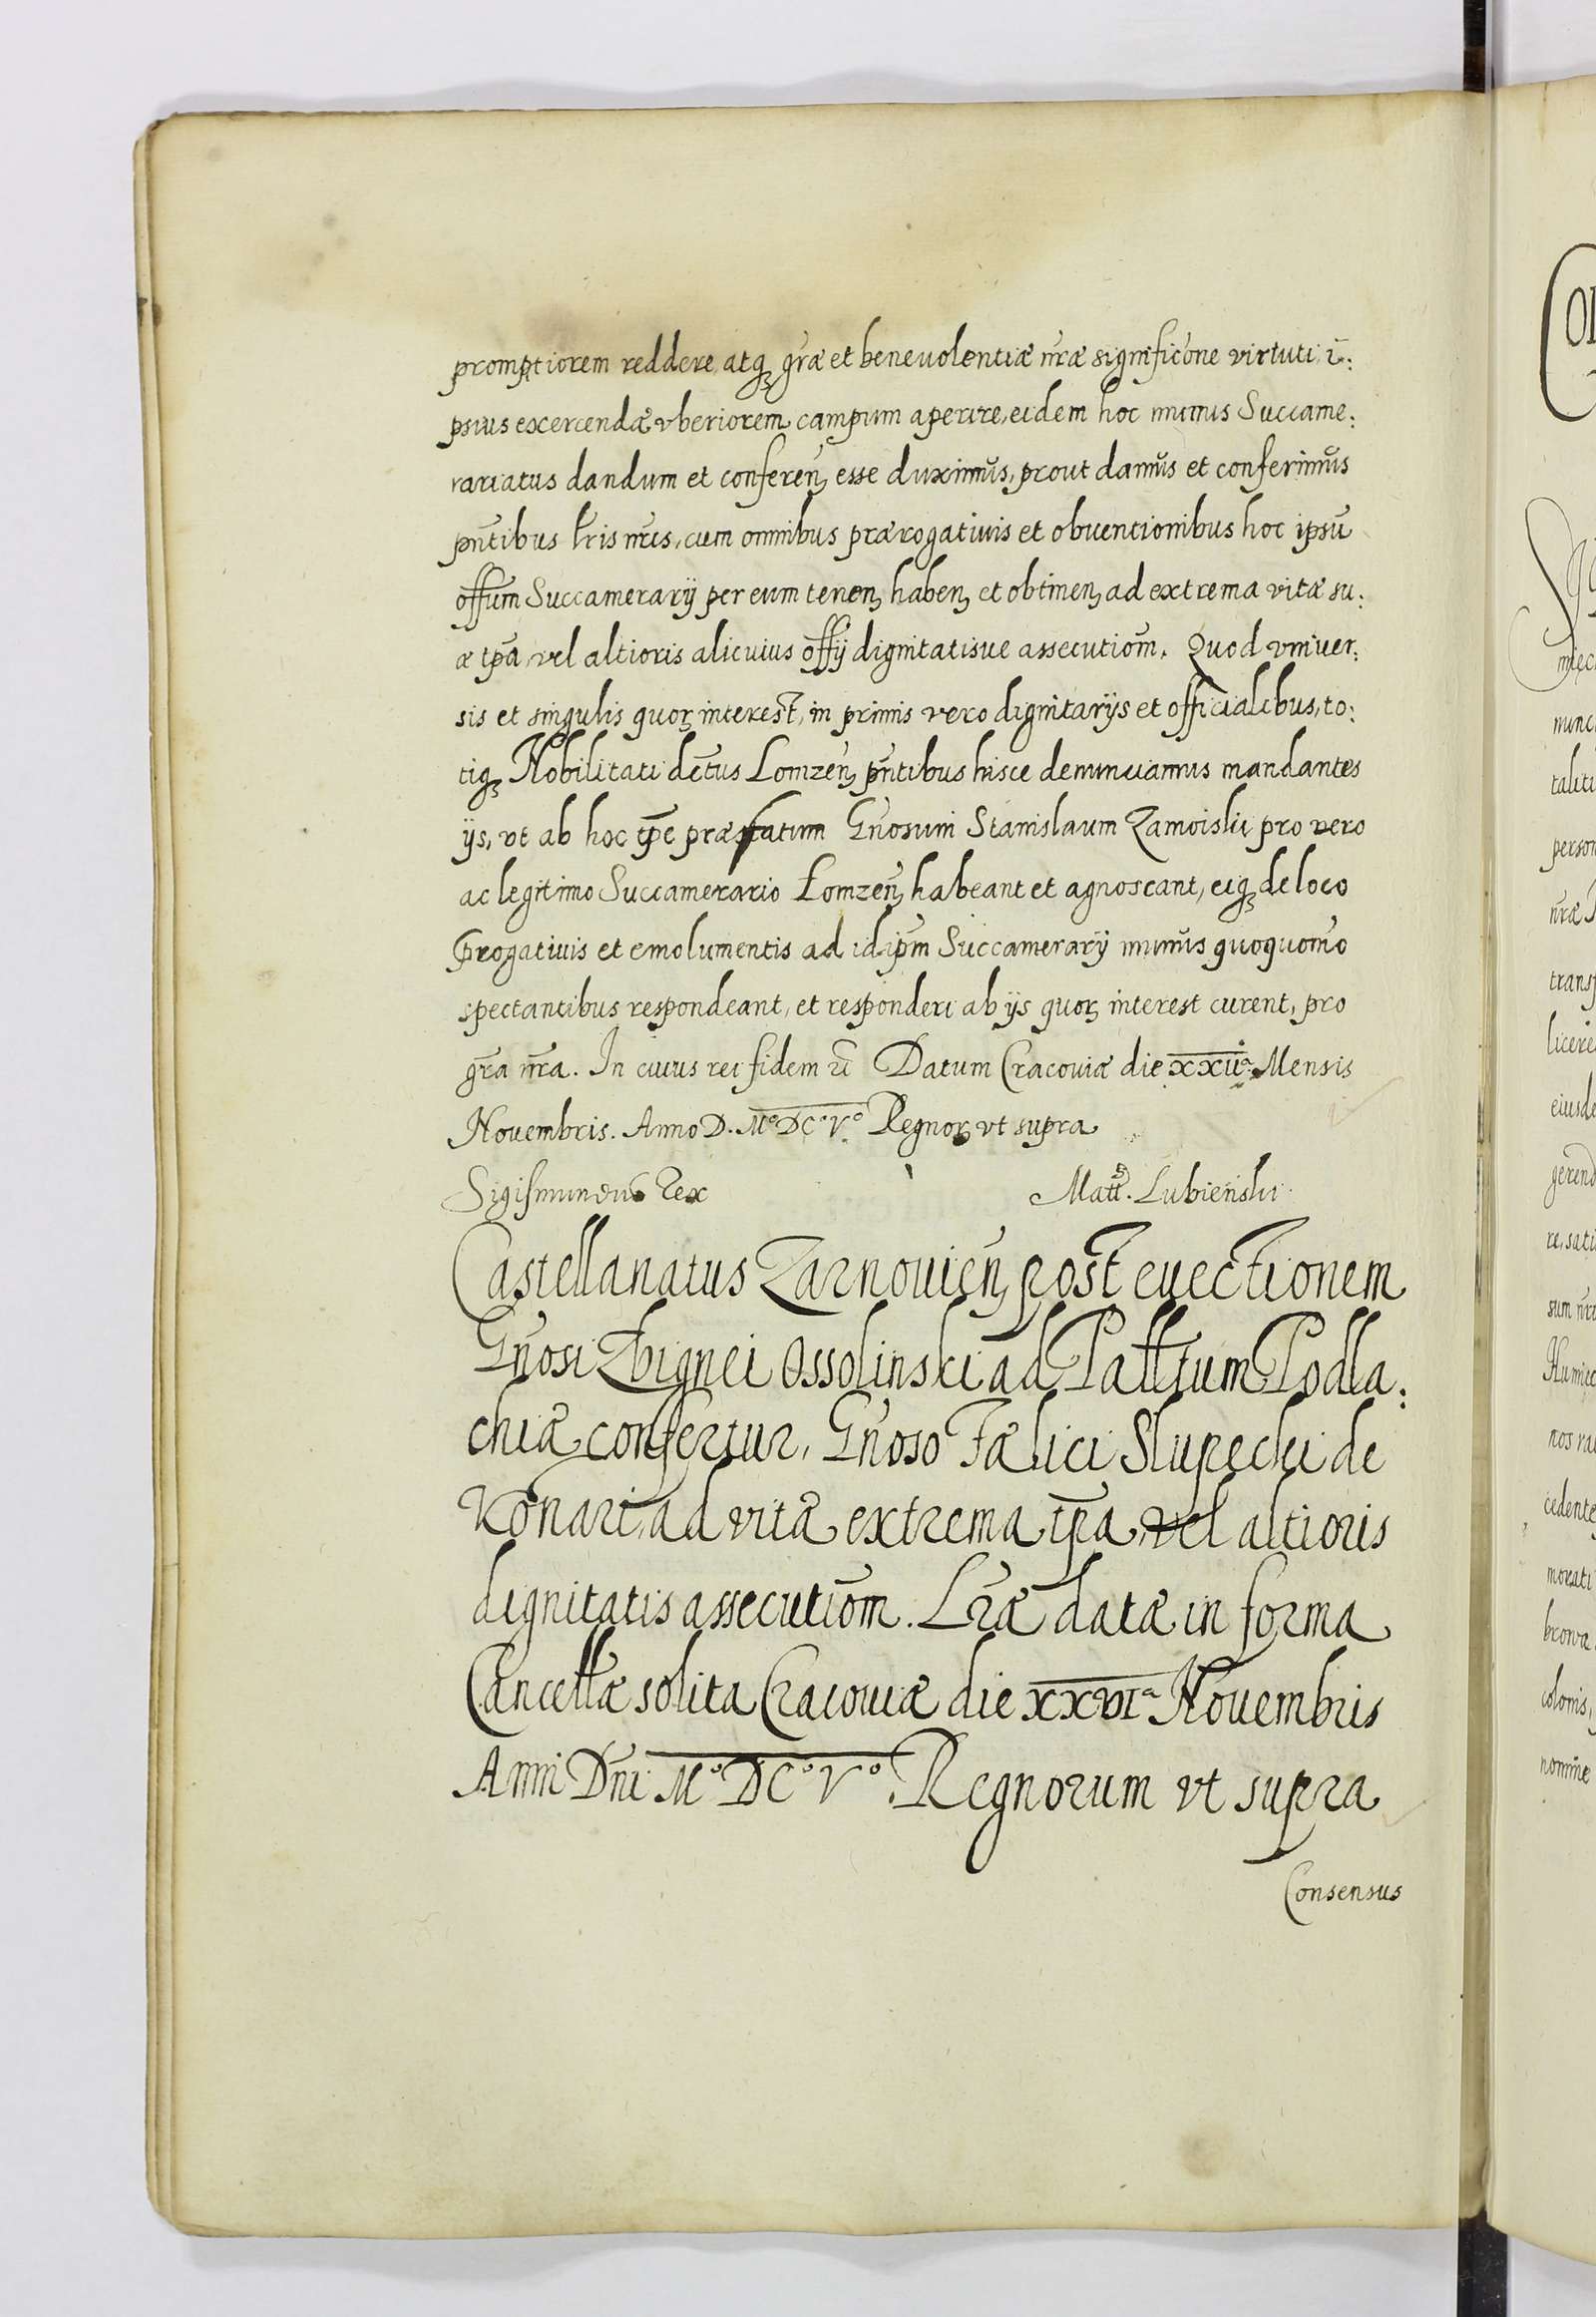 promptiorem reddere, atqꝫ gr̃æ et beneuolentiæ nr̃æ significõne virtuti i:
psius excercendæ vberiorem campum aperire, eidem hoc munus Succame:
rariatus dandum et conferen̄ esse duximus, prout damus et conferimus
pñtibus lr̃is nr̃is, cum omnibus prærogatiuis et obuentionibus hoc ipsū
offūm Succamerarij per eum tenen̄ haben̄ et obtinen̄ ad extrema vitæ su:
æ tp̃a, vel altioris alicuius offij dignitatisue assecutiom̃. Quod vniuer:
sis et singulis quorꝫ interest, in primis vero dignitarijs et officialibus, to:
tiqꝫ Nobilitati dc̃tus Lomzen̄ pñtibus hisce denunciamus mandantes
ijs, vt ab hoc tp̃e præfatum Gñosum Stanislaum Zamoiski pro vero
ac legitimo Succamerario Lomzen̄ habeant et agnoscant, eiqꝫ de loco
p̃rogatiuis et emolumentis ad idip̃m Succamerarij munus quoquomõ
spectantibus respondeant, et responderi ab ijs quorꝫ interest curent, pro
gr̃a nr̃a. In cuius rei fidem Datum Cracouiæ die Mensis
Nouembris. Anno D. M° DC° V° Regnorꝫ vt supra
Sigismundus Rex Matt. Lubienski
Castellanatus Zarnouien̄ post euectionem
Gñosi Zbignei Ossolinski ad Pallatum Podla:
chiæ confertur, Gñoso Fælici Slupecki de
Konari, ad vitæ extrema tp̃a, vel altioris
dignitatis assecutiom̃. Lr̃æ datæ in forma
Cancellæ solita Cracouiæ die XXVIa Nouembris
Anni Dñi M° DC° V°. Regnorum vt supra
Consensus